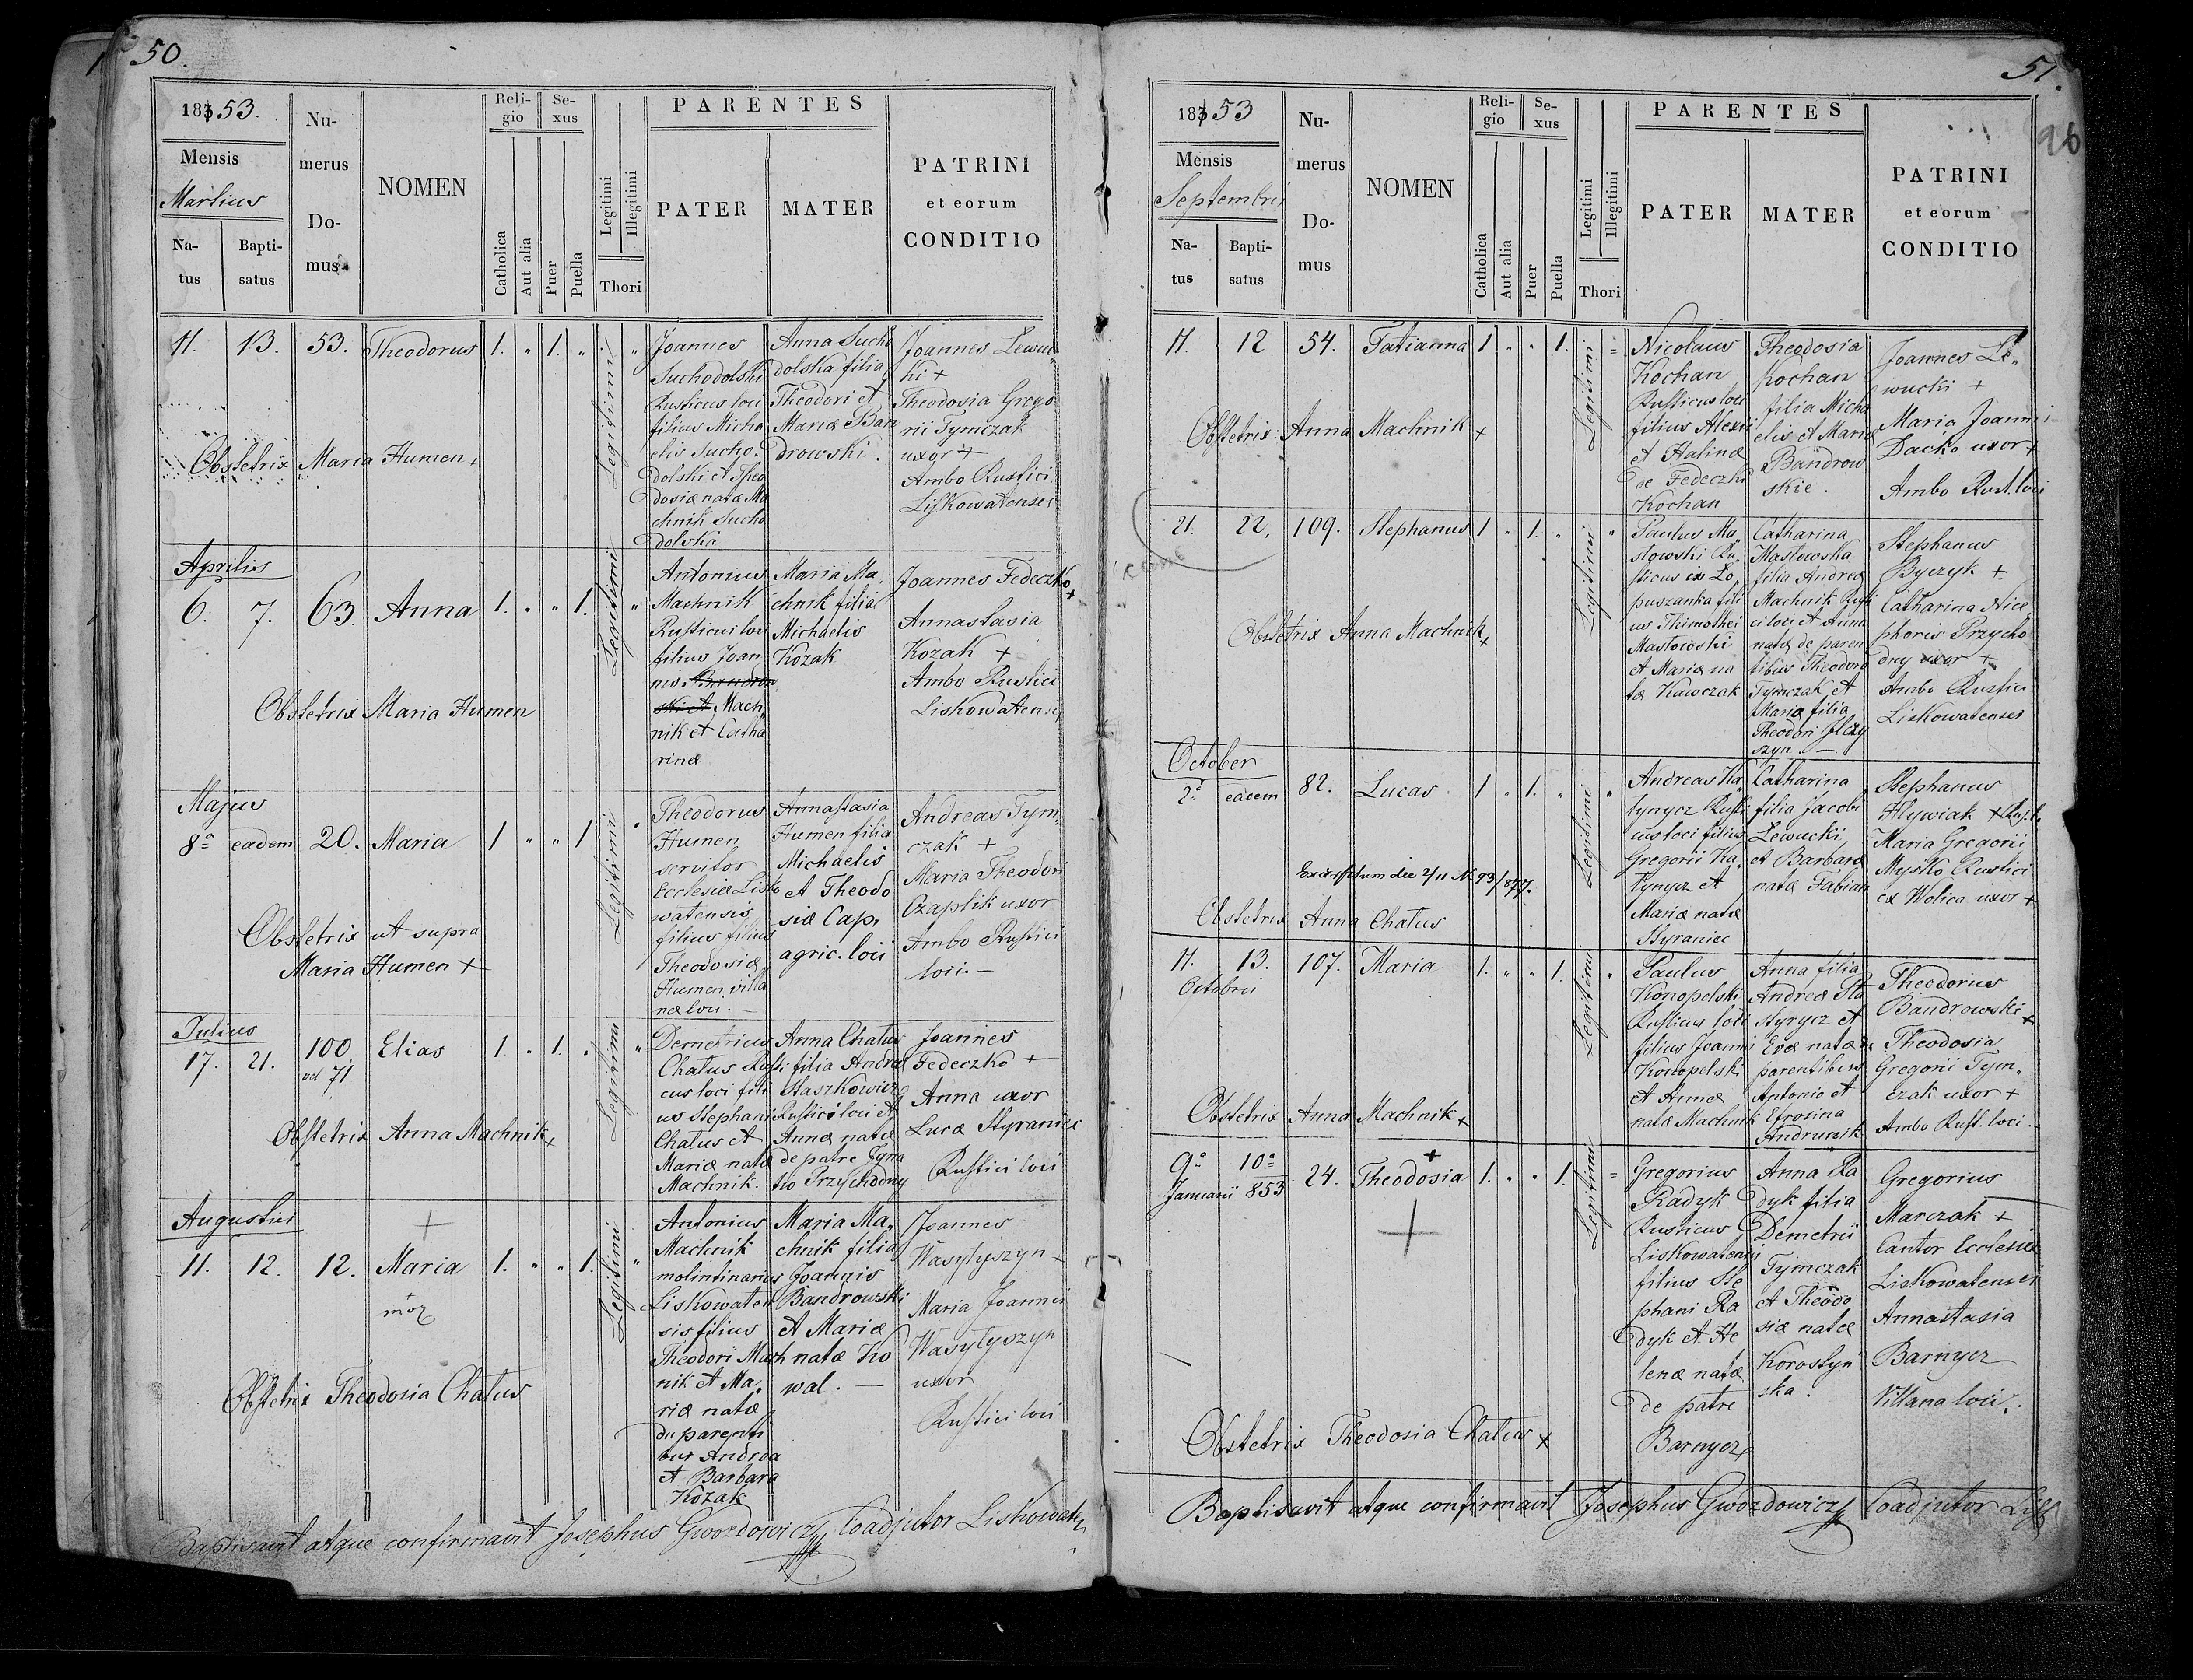 50.
1853.
Mensis
Martius
Na-
tus
Bapti-
satus
Nu-
merus
Do-
mus
NOMEN
Reli-
gio
Catholica
Aut alia
Se-
xus
Puer
Puella
Legitimi
Illegitimi
Thori
PARENTES
PATER
MATER
PATRINI
et eorum
CONDITIO
11. 13. 53. Theodorus 1. " 1. "
Legitimi
Joannes
Suchodolski
Rusticus loci
filius Micha
elis Sucho-
dolski et Theo
dosiæ natæ Ma
chnik Sucho
dolska
Anna Sucho
dolska filia
Theodori et
Mariæ Ban
drowski.
Joannes Lewu„
ki +
Theodosia Grego
rii Tymczak
uxor +
Ambo Rustici
Liskowatenses
Obstetrix Maria Humen +
Aprilis
6. 7. 63. Anna 1. " " 1.
Legitimi
Antonius
Machnik
Rusticus loci
filius Joan
nis Bandrow
ski et Mach„
nik et Catha
rinæ
Maria Ma„
chnik filia
Michaelis
Kozak
Joannes Fedeczko +
Annastasia
Kozak +
Ambo Rustici
Liskowatenses
Obstetrix Maria Humen
Majus
8ª eadem 20. Maria 1 " " 1
Legitimi
Theodorus
Humen
servitor
Ecclesiæ Lisko
watensis
filius filius
Theodosiæ
Humen villa
næ loci. —
Annastasia
Humen filia
Michaelis
et Theodo
siæ Cap,
agric. loci
Andreas Tym„
czak +
Maria Theodori
Czaplik uxor
Ambo Rustici
loci. —
Obstetrix ut supra
Maria Humen +
Julius
17. 21. 100 Elias 1. " 1. "
vel 71
Legitimi
Demetrius
Chatus Rusti
cus loci fili
us Stephani
Chatus et
Mariæ natæ
Machnik.
Anna Chatus
filia Andreæ
Staszkowicz
Rustici loci et
Annæ natæ
de patre Igna
tio Przychodny
Joannes
Fedeczko +
Anna uxor
Lucæ Styraniec
Rustici loci
Obstetrix Anna Machnik +
Augustus
11. 12. 12. Maria 1. " " 1.
Legitimi
Antonius
Machnik
molintinarius
Liskowaten
sis filius
Theodori Mach
nik et Ma„
riæ natæ
de parenti
bus Andrea
et Barbara
Kozak
Maria Ma„
chnik filia
Joannis
Bandrowski
et Mariæ
natæ Ko
wal. —
Joannes
Wasylyszyn
Maria Joannis
Wasylyszyn
uxor
Rustici loci
Obstetrix Theodosia Chatus
Baptisavit atque confirmavit Josephus Gwozdowicz Coadjutor Liskowat
51.
96
1853
Mensis
Septembris
Na-
tus
Bapti-
satus
Nu-
merus
Do-
mus
NOMEN
Reli-
gio
Catholica
Aut alia
Se-
xus
Puer
Puella
Legitimi
Illegitimi
Thori
PARENTES
PATER
MATER
PATRINI
et eorum
CONDITIO
11. 12 54. Tatianna 1 " " 1.
Legitimi
Nicolaus
Kochan
Rusticus loci
filius Alexii
et Halinæ
de Fedeczki
Kochan
Theodosia
Kochan
filia Micha
elis et Mariæ
Bandrow
skie.
Joannes Le„
wucki +
Maria Joannis
Dacko uxor +
Ambo Rust. loci
Obstetrix: Anna Machnik +
21. 22. 109. Stephanus 1 " 1. "
Legitimi
Paulus Ma„
stowski Ru„
sticus ex Lo„
puszanka fili
us Thimothei
Mastowski
et Mariæ na
tæ Kawczak
Catharina
Mastowska
filia Andreæ
Machnik Rusti
ci loci et Anna
natæ de paren
tibus Theodoro
Tymczak et
Mariæ filia
Theodori Ilczy
szyn. —
Stephanus
Byczyk +
Catharina Nice„
phoris Przycho
dny uxor +
Ambo Rustici
Liskowatenses
Obstetrix Anna Machnik +
October
2ª eadem 82. Lucas 1 " 1. "
Legitimi
Andreas Ha„
tynycz Rusti
cus loci filius
Gregorii Ha„
tynycz et
Mariæ natæ
Styraniec
Catharina
filia Jacobi
Lewucki
et Barbaræ
natæ Fabian
Stephanus
Hlywiak + Rust.
Maria Gregorii
Mysko Rustici
ex Wolica uxor +
Exscriptum die 2/11 N 93/877.
Obstetrix Anna Chatus
11. 13. 107. Maria 1. " " 1.
Octobris
Legitimi
Paulus
Konopelski
Rusticus loci
filius Joannis
Konopelski
et Annæ
natæ Machnik
Anna filia
Andreæ Sta
styrycz et
Evæ natæ de
parentibus
Antonio et
Efrosina
Andrunik
Theodorius
Bandrowski +
Theodosia
Gregorii Tym„
czak uxor +
Ambo Rust. loci.
Obstetrix Anna Machnik +
9ª 10ª 24. Theodosia 1. " " 1.
Januarii 853
Legitimi
Gregorius
Radyk
Rusticus
Liskowatensis
filius Ste
phani Ra
dyk et He
lenæ natæ
de patre
Barnycz
Anna Ra
dyk filia
Demetrii
Tymczak
et Theodo
siæ natæ
Korostyń
ska.
Gregorius
Marczak +
Cantor Ecclesiæ
Liskowatensis
Annastasia
Barnycz
Villana loci.
Obstetrix Theodosia Chatus +
Baptisavit atque confirmavit Josephus Gwozdowicz Coadjutor Lisk